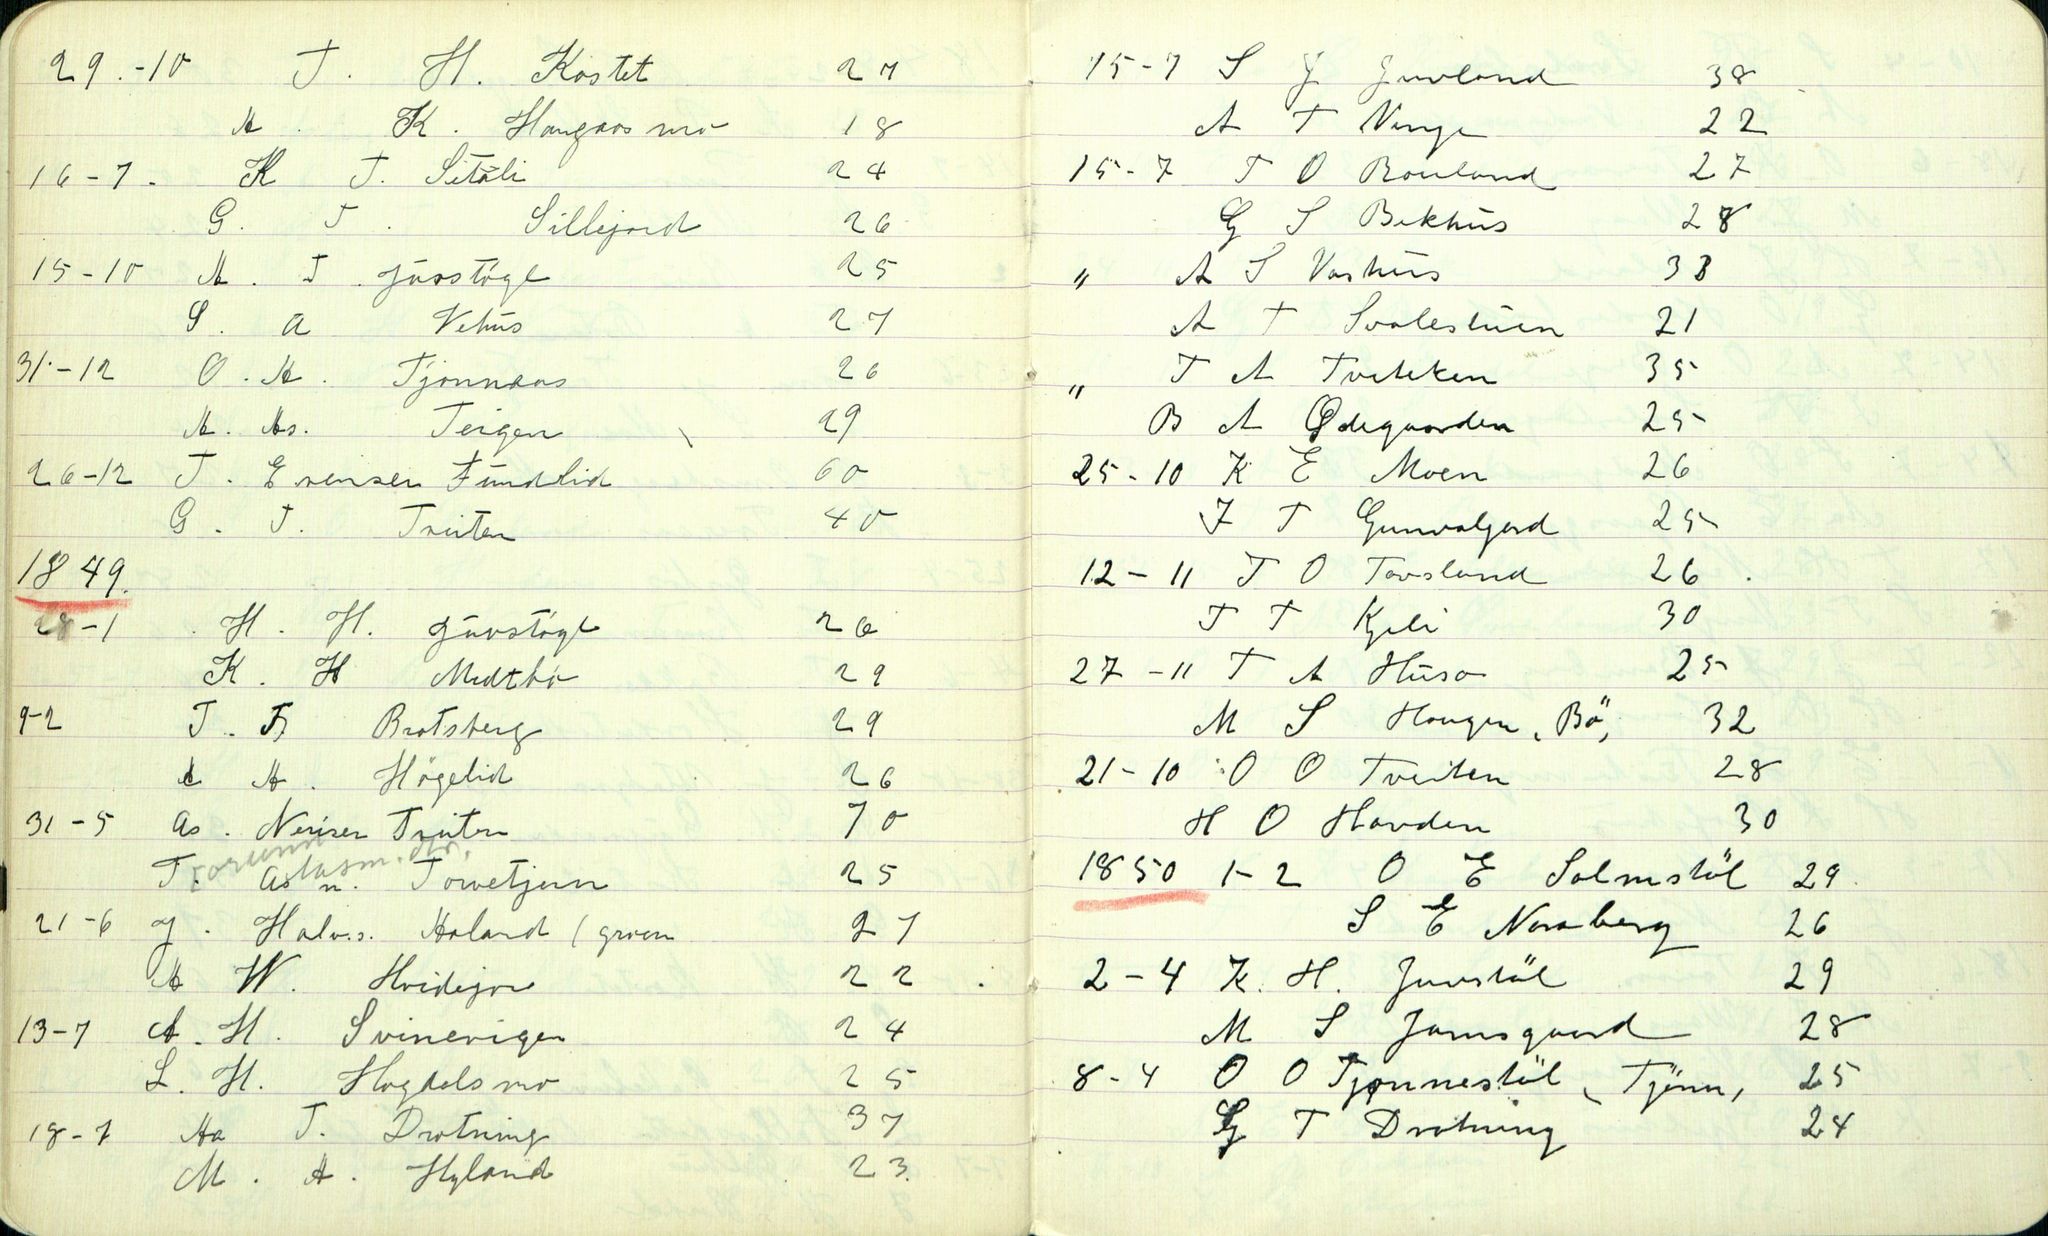 29.-10 T. H. Kostet 27
A. K. Haugaasmo 18
16-7. K T. Sitäli 24
G. T. Sillejord 26
15-10 A. T. Juvstögl 25
S. A Vehus 27
31-12 O. A. Tjonnaas 26
A. As. Teigen 29
26-12 T. Evensen Fundlid 60
G. T. Tveiten 40
1849.
28-1 H. H. Juvstögl 26
K. H Midtbö 29
9-2 T. Bratsberg 29
A. Högelid 26
31-5 As. Nerisen Tveiten 70
Torunn Aslasm. dtr.
T. As n. Torvetjern 25
21-6 J. Halv.s. Haland (groven 27
A W. Hvidejor 22.
13-7 A. H. Svinevigen 24
L. H. Hogdalsmo 25
18-7 Aa T. Drotning 37
M. A. Hyland 23.
15-7 S J Juvland 38
A T Vinge 22
15-7 T O Rauland 27
G S Bekhus 28
" A S Vashus 33
A T Svalestuen 21
" T A Tveiteken 35
B A Ødegaarden 25
25-10 K E Moen 26
J T Gunvalgjerd 25
12-11 T O Tovsland 26.
T T Kjeli 30
27-11 T A Husa 25
M S Haugen, Bö, 32
21-10 O O Tveiten 28
H O Havden 30
1850 1-2 O E Solmstöl 29
S E Noraberg 26
2-4 K. H. Juvstöl 29
M S Jamsgaard 28
8-4 O O Tjønnestöl, Tjönn, 25
G T Drotning 24